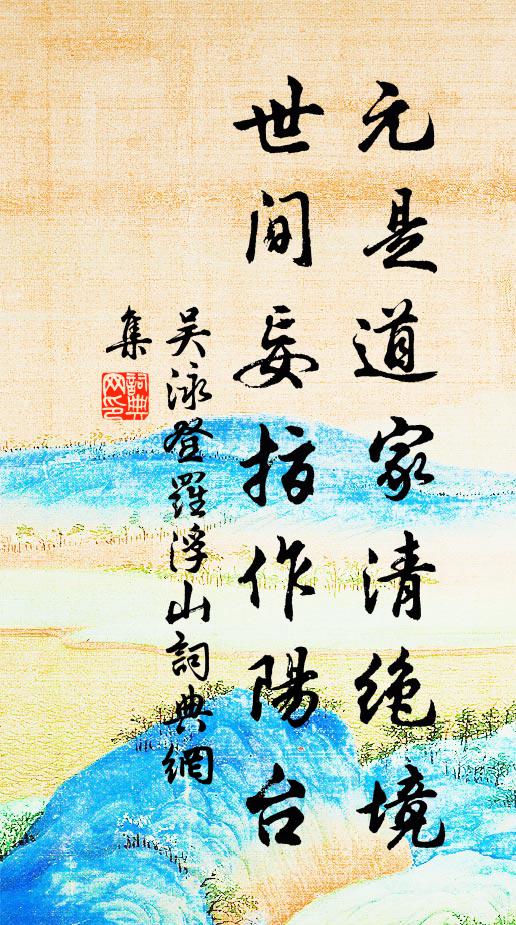 元是道家清绝境
世间妄指作陽台
吴泳登羅浮山詞典網
集
詞典网印